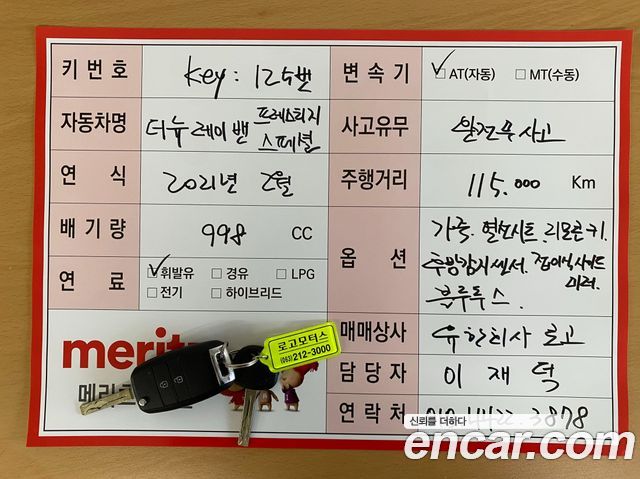 키번호 key : 125번 변속기 ☑AT(자동) □MT(수동)
자동차명 더뉴레이밴 프레스티지 스페셜 사고유무 완전무사고
연식 2021년 2월 주행거리 115.000 Km
배기량 998 CC 옵션 가죽. 열선시트. 리모콘키.
후방감지센서. 접이식사이드미러.
블루투스.
연료 ☑휘발유 □경유 □LPG
□전기 □하이브리드
매매상사 유한회사 로고
담당자 이재덕
연락처
merit
메리
로고모터스
(063)212-3000
신뢰를 더하다
encar.com